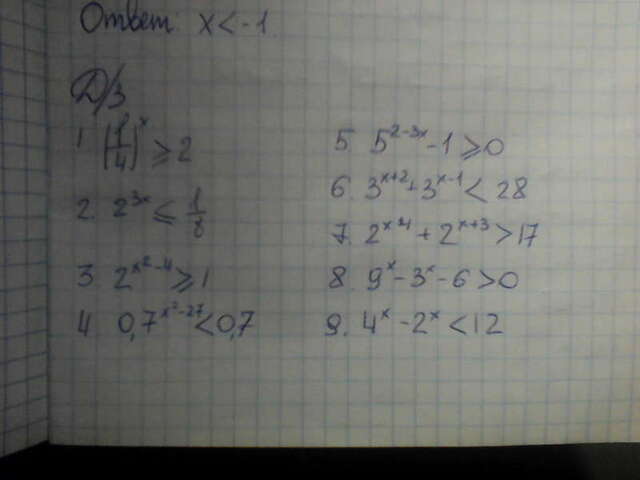 Ответ: x < -1
Д/З
1 (1/4)^x ⩾ 2
2. 2^{3x} ⩽ 1/8
3 2^{x²-4} ⩾ 1
4 0,7^{x²-27} < 0,7
5 5^{2-3x} - 1 ⩾ 0
6. 3^{x+2} + 3^{x-1} < 28
7. 2^{x-1} + 2^{x+3} > 17
8. 9^x - 3^x - 6 > 0
9. 4^x - 2^x < 12